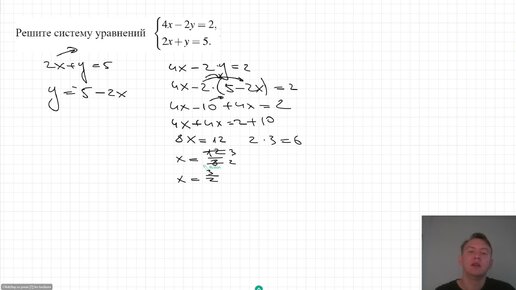 Решите систему уравнений { 4x − 2y = 2,
2x + y = 5.
2x+y=5
y=5−2x
4x−2·y=2
4x−2·(5−2x)=2
4x−10+4x=2
4x+4x=2+10
8x=12 2·3=6
x=12/8 3/2
x=3/2